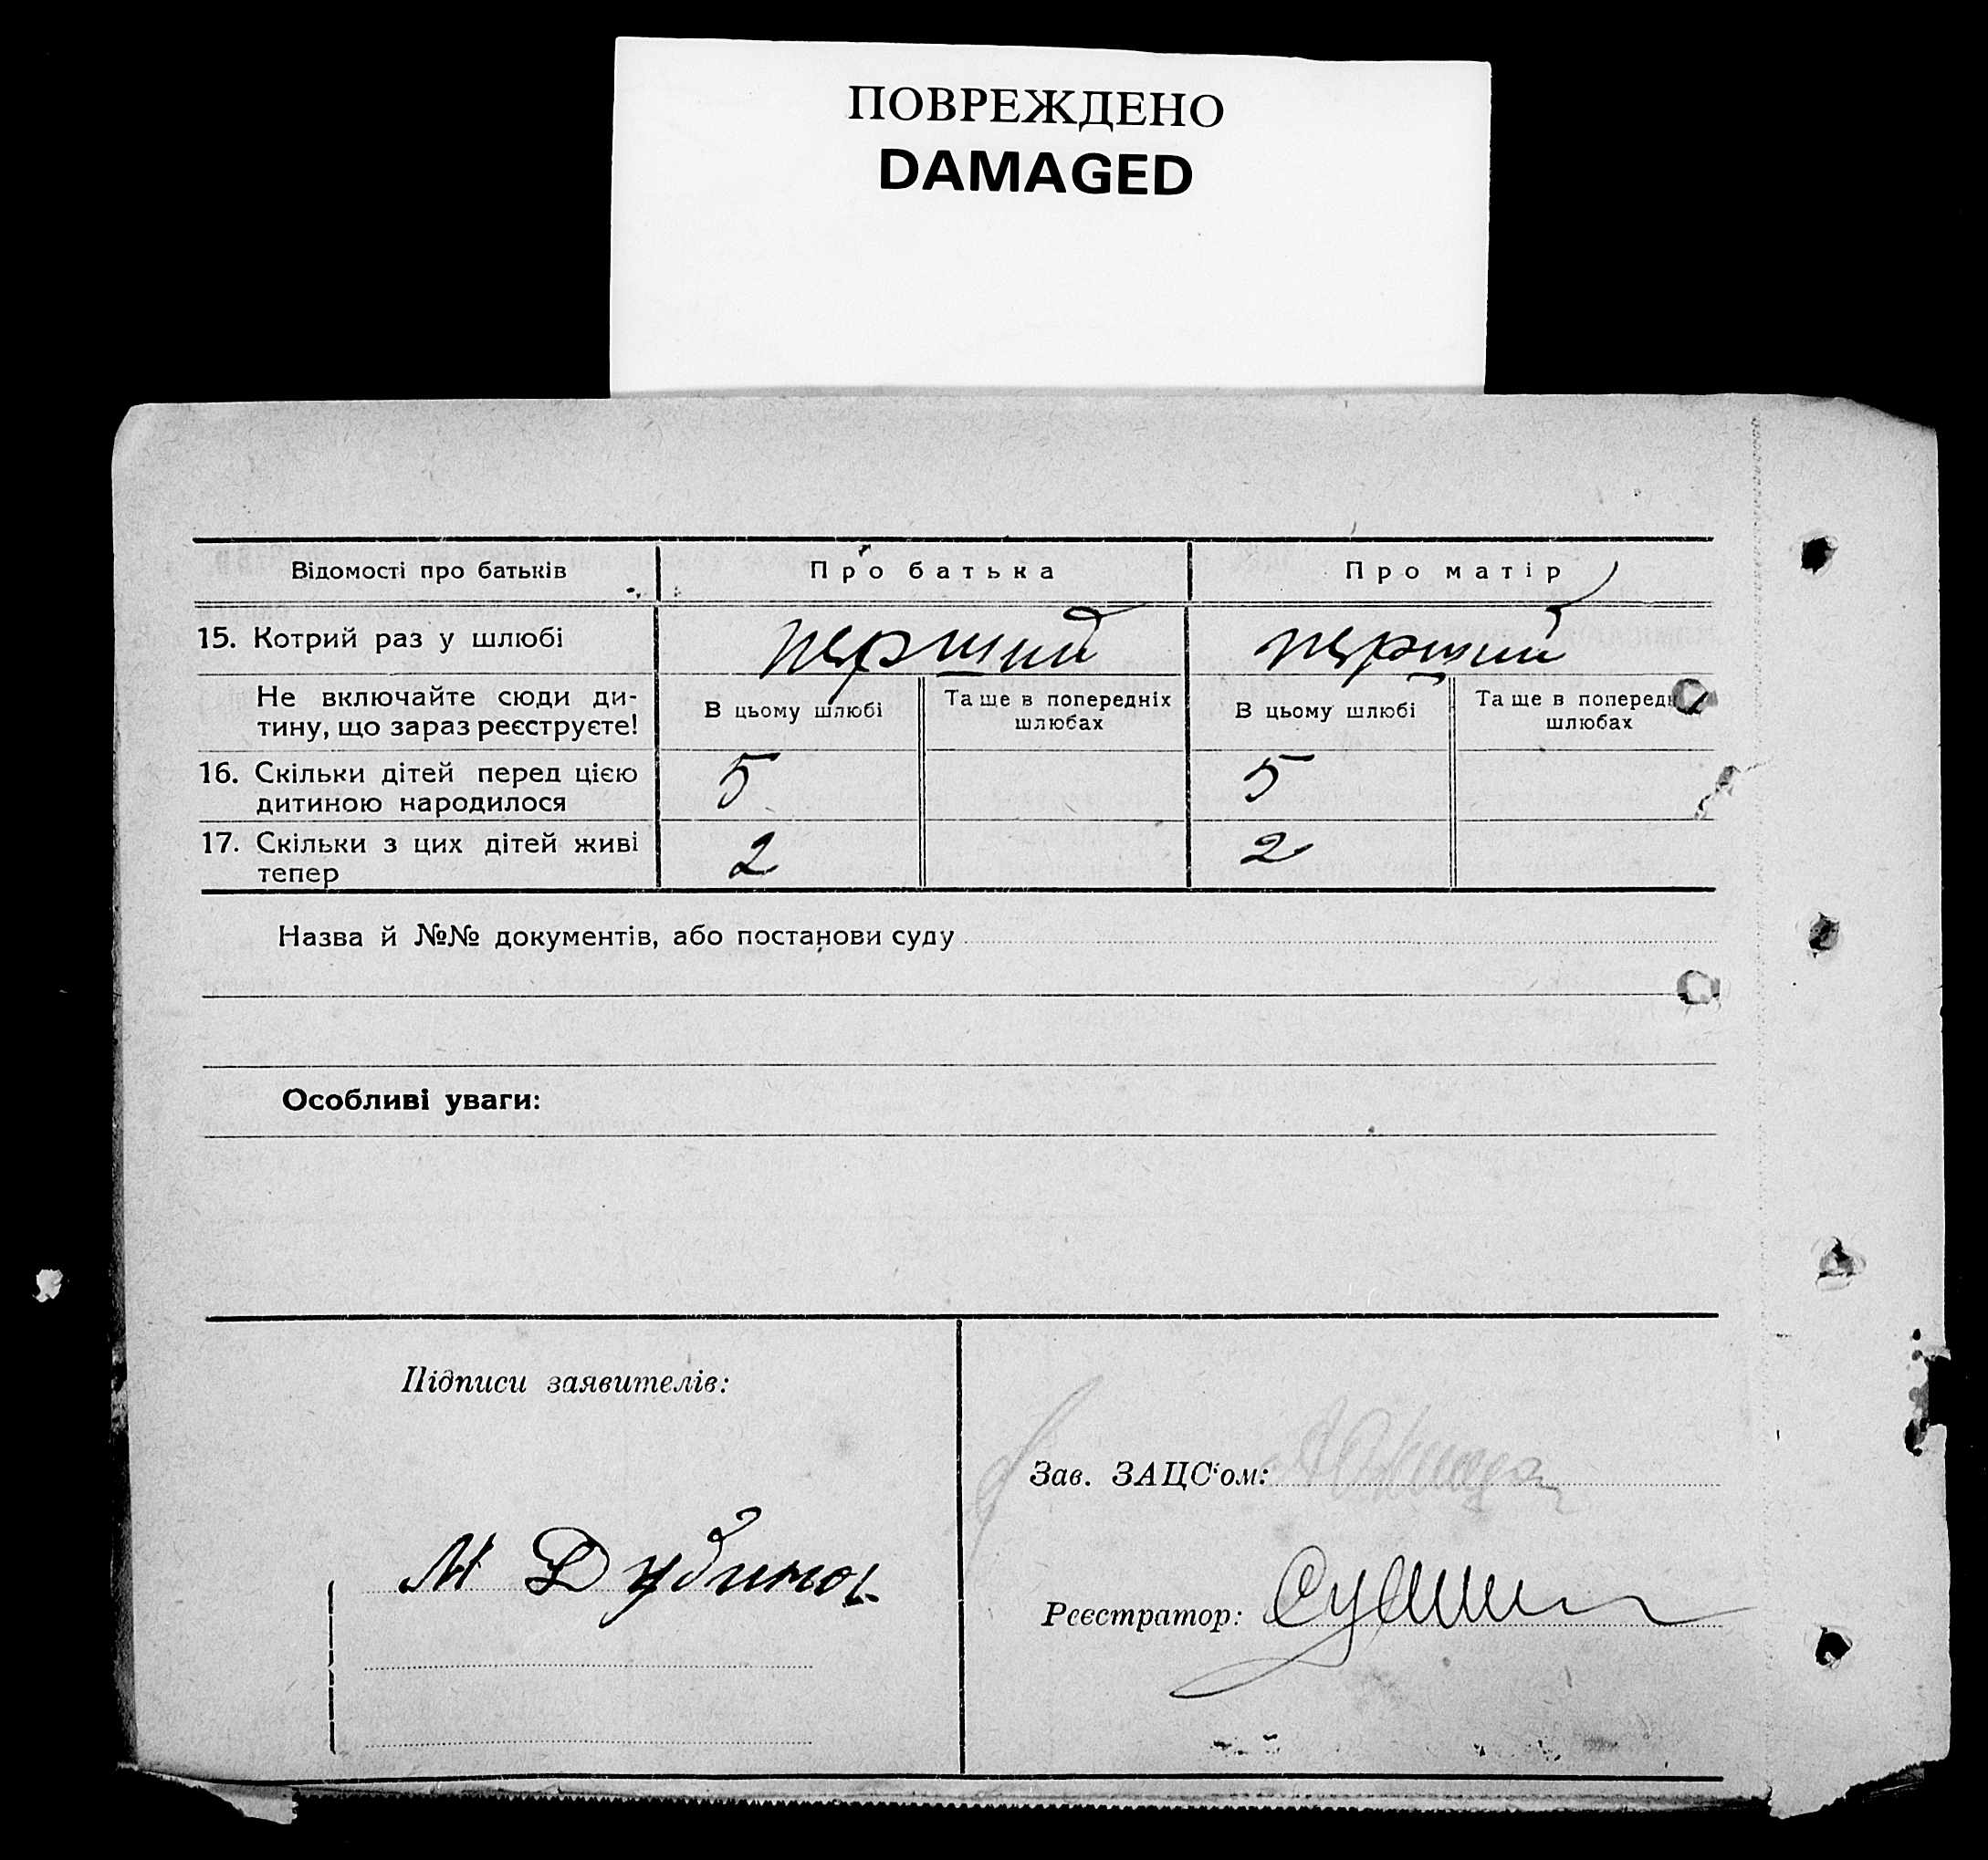 ПОВРЕЖДЕНО
DAMAGED
Відомості про батьків
Про батька
Про матір
15. Котрий раз у шлюбі
перший
перший
Не включайте сюди ди-
тину, що зараз реєструєте!
В цьому шлюбі
Та ще в попередніх
шлюбах
В цьому шлюбі
Та ще в поперед
шлюбах
16. Скільки дітей перед цією
дитиною народилося
5
5
17. Скільки з цих дітей живі
тепер
2
2
Назва й №№ документів, або постанови суду
Особливі уваги:
Підписи заявителів:
М Дубинов
Зав. ЗАЦС'ом:
Реєстратор: